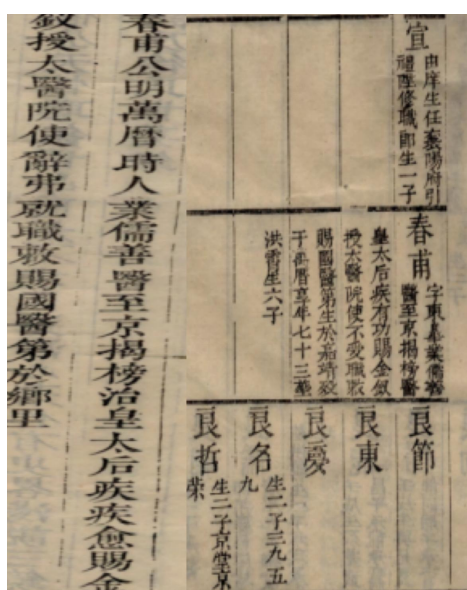 宣
由庠生任襄陽府引
禮陞修職郎生一子
春甫
字東皋業儒善
醫至京揭榜醫
皇太后疾有功賜金釵
授太醫院使不受職敕
賜國醫第生於嘉靖歿
于萬曆享年七十三葬
洪霄生六子
良節
良東
良憂
良名
生二子三九五
九
良哲
生二子京堂京
榮
春甫公明萬曆時人業儒善醫至京揭榜治皇太后疾疾愈賜金
釵授太醫院使辭弗就職敕賜國醫第於鄉里